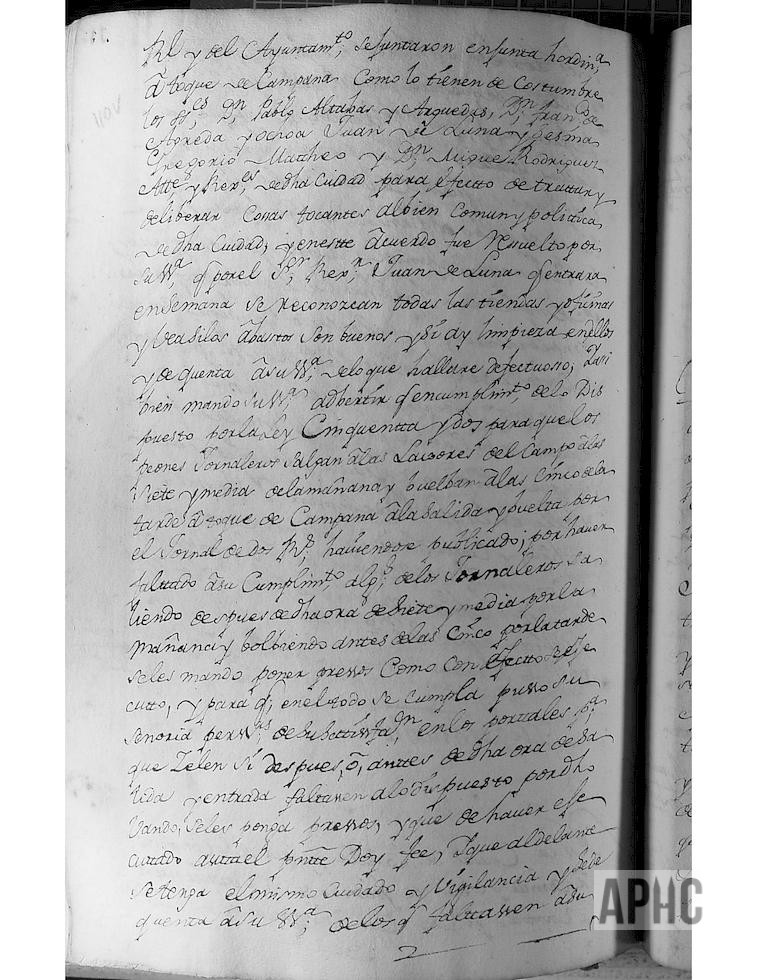 Rl y del Ayuntamto, se Juntaron en Junta hordina
â toque de Campana Como lo tienen de Costumbre
los SSes Dn Pablo Altabas y Arguedas, Dn Franco de
Agreda y ochoa Juan de Luna y Lesma
Gregorio Matheo y Dn Miguel Rodriguez
Atte y Rexes de dha Ciudad para efectto de trattar y
deliberar Cosas tocantes al bien Comun y politica
de dha Ciudad, y en estte âcuerdo fue Resuelto por
su SSa q por el Sr Rexr Juan de Luna q entrara
en Semana se reconozcan todas las tiendas y ofizinas
y vea si los âbastos son buenos y si ay limpieza en ellos
y de quenta â su SSa de lo que hallare defectuoso, Y asi
bien mando su SSa adbertir q en cumplimto de lo Dis
puesto por la Ley Cinquentta y dos para que los
peones Jornaleros salgan â las Lavores del Campo â las
siete y media de la mañana y buelban â las Cinco de la
tarde â toque de Campana â la salida y buelta por
el Jornal de dos Rs haviendose publicado; por haver
faltado â su Cumplimto algs de los Jornaleros sa
liendo despues de dha ora de siete y media por la
mañana y bolbiendo antes de las Cinco por la tarde
se les mando poner pressos Como con efectto se eje
cutto, y para q en el todo se Cumpla pusso su
Señoria perssas de su Sattisfan en los portales pa
que Zelen si despues, ô, anttes de dha ora de sa
lida y entrada faltassen a lo dispuesto por dho
Vando, se les ponga pressos, y que de haver eje
cuttado assi el pntte Doy fee, Y que al delante
se tenga el mismo Cuidado y Vigilancia y se de
quenta â su SSa de los q faltassen â su
APHC